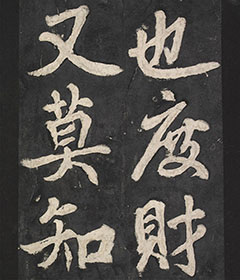 也度財
又莫知